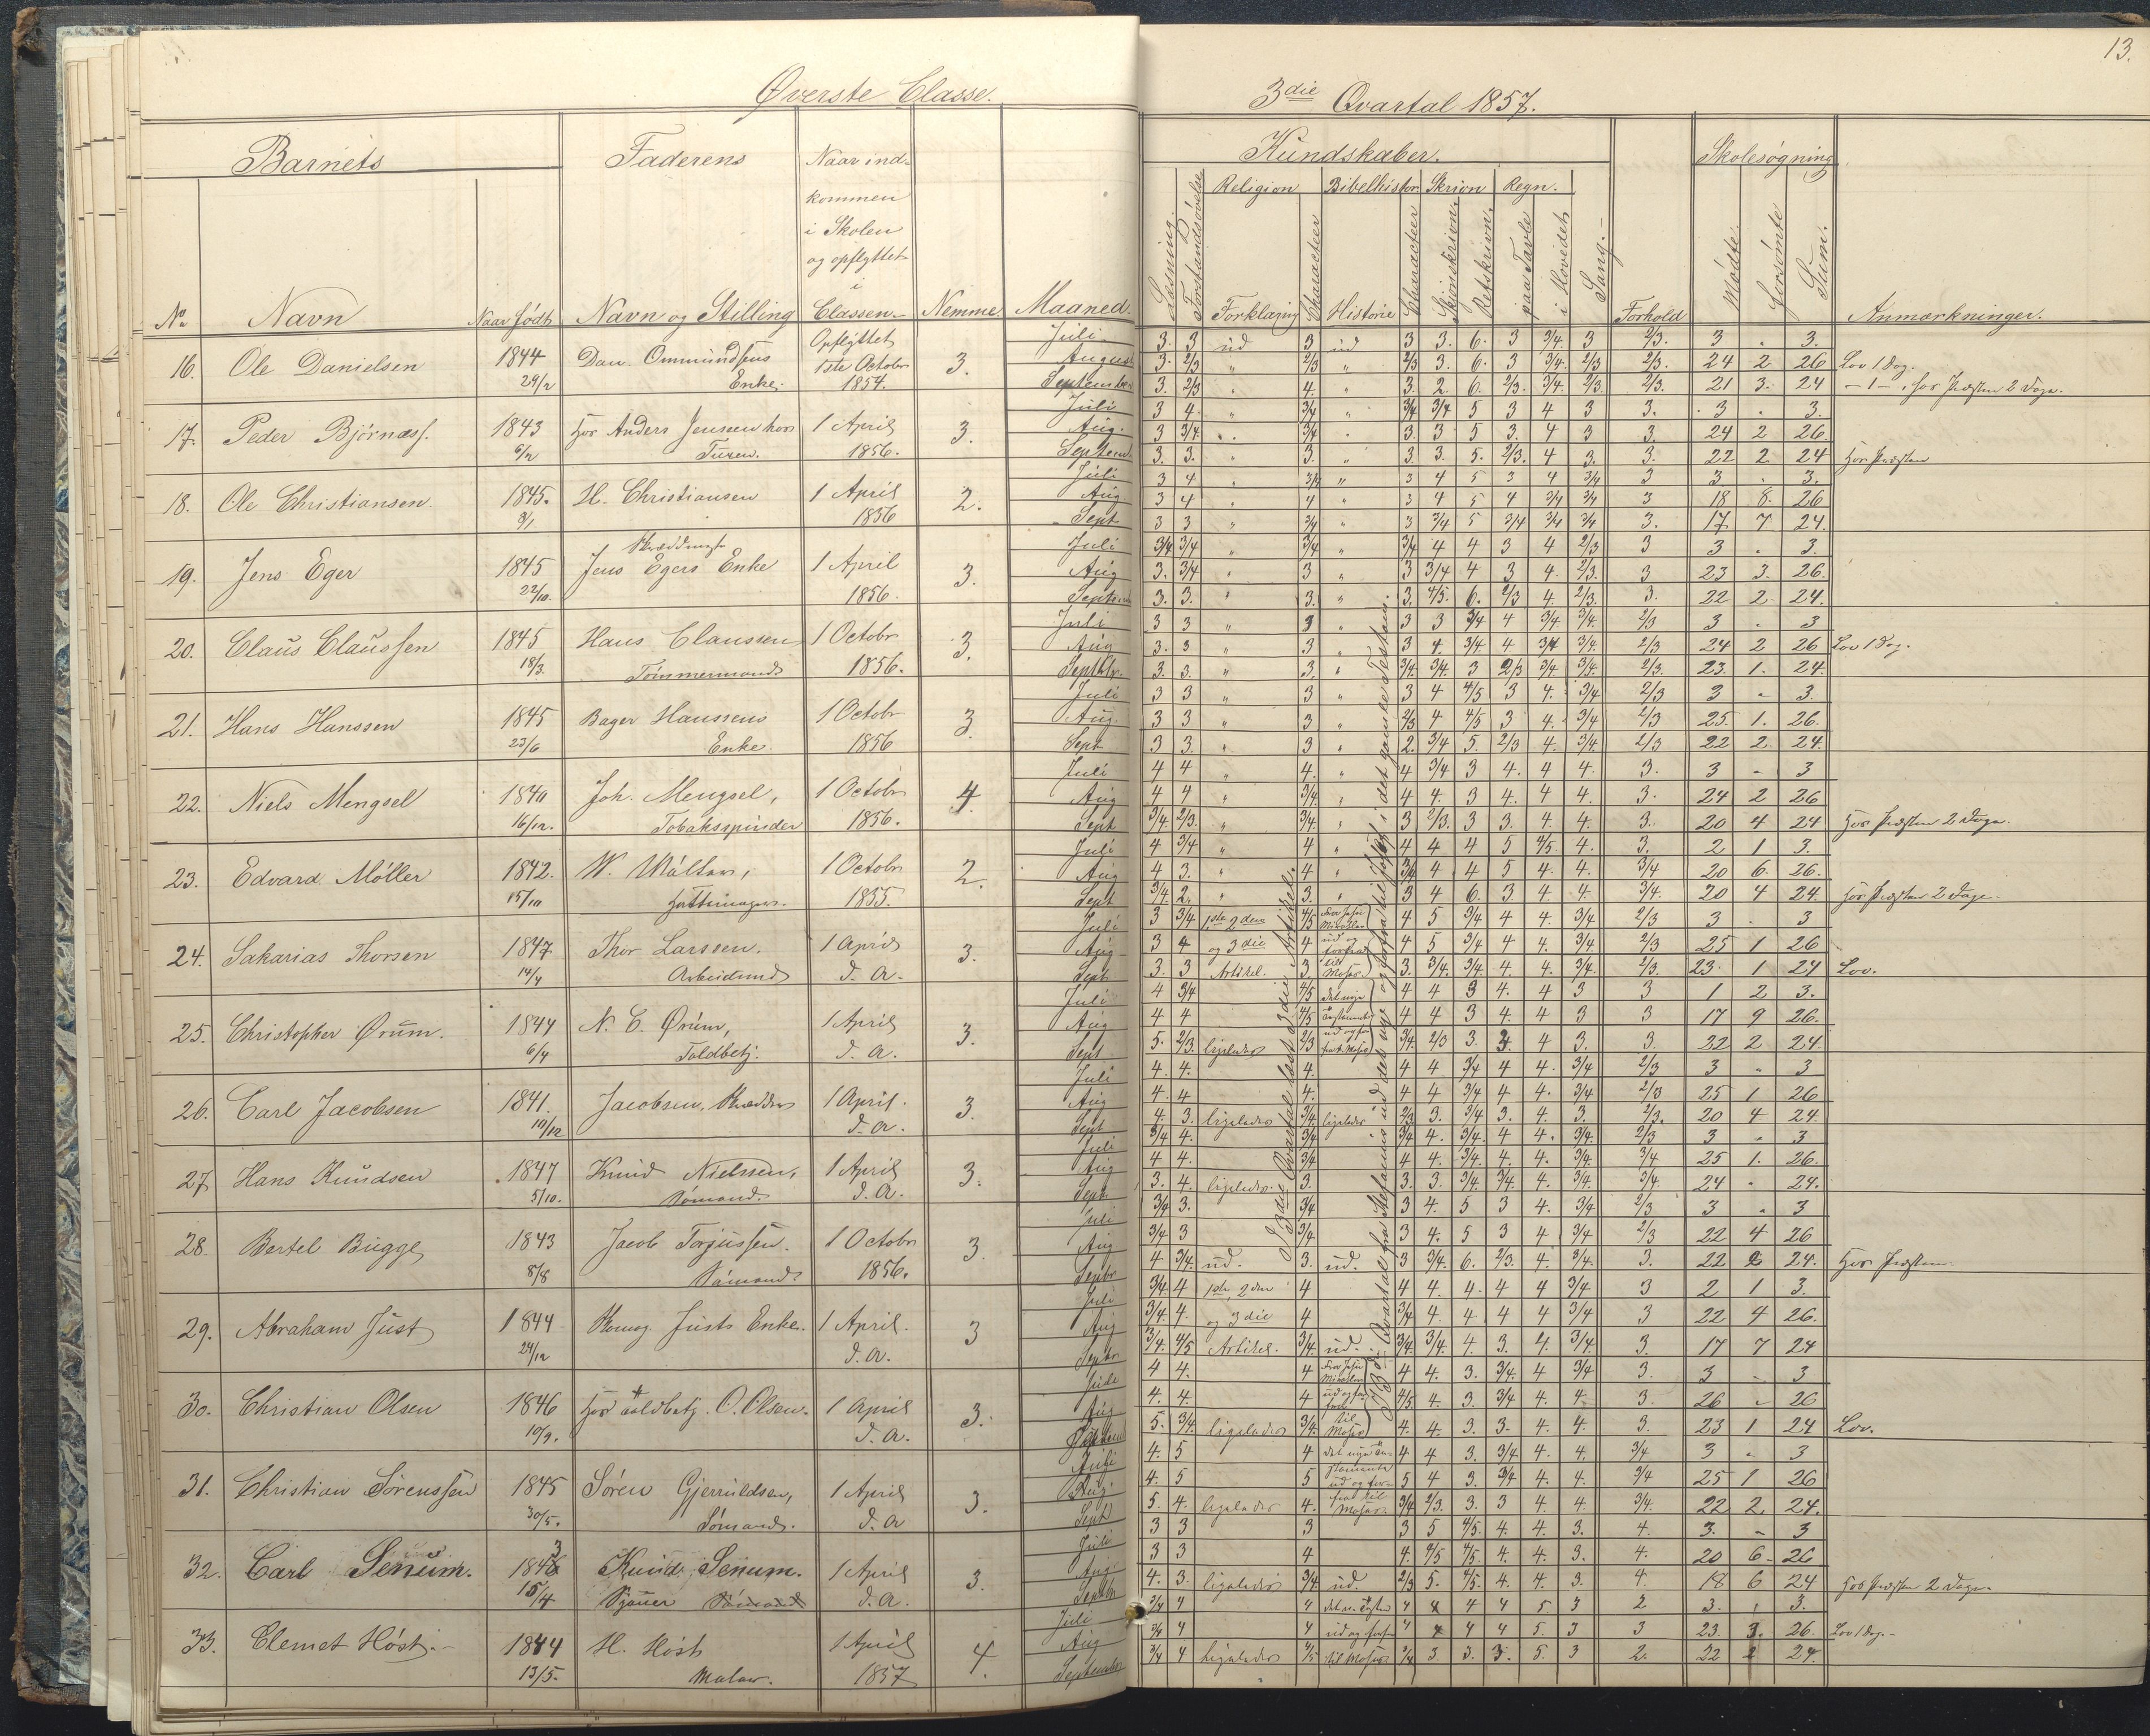 13.
Øverste Classe.
3die Qvartal 1857.
Barnets Faderens Naar ind-
kommen
i Skolen
og opflyttet
i
No Navn Naar født Navn og Stilling Classen. Nemme Maaned.
Kundskaber. Skolesøgning
Religion Bibelhistor. Skrivn Regn.
Læsning. Forstandsøvelse Forklaring Character Historie Character Skjönskrivn. Retskrivn. paa Tavle i Hovedet Sang. Forhold Mödte. Forsömte Sum. Anmærkninger.
Opflyttet Juli 3. 3 ud 3 ud 3 3. 6. 3 3/4. 3 2/3. 3 . 3.
16. Ole Danielsen 1844 Dan. Ommundsens 1ste Octobr 3. August 3. 2/3 " 2/3 " 2/3 3. 6. 3 3/4. 2/3 2/3. 24 2 26 Lov 1 Dag.
29/2 Enke. 1854. September 3. 2/3 " 4. " 3. 2. 6. 2/3. 3/4. 2/3. 2/3. 21 3. 24 -1-, hos Præsten 2 Dage.
Juli 3 4. " 3/4 " 3/4 3/4 5 3 4 3 3. 3 . 3.
17. Peder Bjørness. 1843 hos Anders Jensen hos 1 April 3. Aug. 3 3/4. " 3/4 " 3. 3 5 3. 4 3 3. 24 2 26.
6/2 1856. Septem. 3. 3. " 3. " 3. 3. 5. 2/3. 4 3. 3. 22 2 24 hos Præsten
Juli 3 4 " 3/4 " 3 4 5 3 4 3/4 3 3. . 3.
18. Ole Christiansen. 1845. H. Christiansen 1 April 2. Aug. 3 4 " 4 " 3 4 5 4 3/4 3/4 3 18 8. 26
8/1 1856 Sept 3 3 " 3/4 " 3 3/4 5 3/4 3/4 3/4 3. 17 7 24.
Juli 3/4 3/4 " 3/4 " 3/4 4 4 3 4 2/3 3 3 . 3.
19. Jens Eger 1845 Jens Egers Enke 1 April 3. Aug 3. 3/4 " 3 " 3 3/4 4 3 4. 2/3. 3 23 3. 26.
22/10. 1856. Septemb 3. 3. " 3. " 3. 4/5. 6. 2/3 4. 2/3. 3. 22 2. 24.
Juli 3 3 " 3 " 3 3 3/4 4 3/4. 3/4. 2/3 3 . 3
20. Claus Claussen 1845 Hans Claussen 1 Octobr 3. Aug 3. 3 " 3 " 3 4. 3/4 4 3/4 3/4. 2/3 24 2 26 Lov 1 Dag.
18/3. Tömmermand 1856. Septbr. 3. 3. " 3. " 3/4. 3/4. 3 2/3 3/4 3/4. 2/3. 23. 1. 24.
Juli 3 3 " 3 " 3 4 4/5 3 4. 3/4 2/3 3 - 3.
21. Hans Hanssen 1845 Bager Hanssens 1 Octobr 3. Aug. 3 3 " 3 " 2/3 4 4/5 3 4. 3/4 2/3 25. 1. 26.
23/6 Enke. 1856 Sept 3 3. " 3 " 2. 3/4 5. 2/3 4. 3/4 2/3 22 2. 24.
Juli 4 4 " 4. " 4 3/4 3 4. 4 4. 3. 3 - 3
22. Niels Mengsel 1840 Joh. Mengsel, 1 Octobr 4. Aug 4 4 " 3/4. " 4 4. 3 4. 4 4. 3. 24 2 26
16/12. Tobaksspinder 1856. Sept 3/4. 2/3. " 3/4. " 3 2/3. 3 3. 4 4. 3. 20 4 24 hos Præsten 2 Dage.
Juli 4 3/4 " 4 " 4 4 4 5 4/5. 4. 3. 2 1 3.
23. Edvard Møller 1842. 1 Octobr 2. Aug 4 3. " 4 " 3/4 4 4 5 4. 4. 3/4 20 6. 26.
15/10 1855. Sept 3/4. 2. " 3. " 3 4 6. 3. 4 4. 3/4. 20 4 24. hos Præsten 2 Dage.
Juli 3 3/4 1ste 2den 4/5 4 5 3/4 4 4. 3/4 2/3 3 . 3
24. Sakarias Thorsen 1847 Thor Larssen. 1 April 3. Aug 3 4 og 3die 4 ud og 4 5 3/4 4 4. 3/4. 2/3 25 1 26
14/4 Arbeidsmd d. A. Sept 3. 3 Artikel. 3. Moses 3. 3/4. 3/4. 4. 4. 3/4. 2/3. 23. 1 24 Lov.
Juli 4 3/4 4/5 det nye 4 4 3 4. 4 3 3 1 2 3.
25. Christopher Ørum. 1844 N. C. Ørum, 1 April 3. Aug 4 4 4/5 Testament 4 4 3 4. 4 3 3 17 9 26.
6/4 Toldbetj. d. A. Sept 5. 2/3. ligeledes 2/3 3/4. 2/3 3. 3. 4 3. 3. 22 2 24.
Juli 4. 4. 4. 4 4 3/4 4 4. 3/4 2/3 3 " 3
26. Carl Jacobsen 1841. Jacobsen, Skrædder 1 April. 3. Aug 4. 4 4. 4 4 3/4 4. 4. 3/4 2/3 25 1 26
10/12 d. A. Sept 4. 3. ligeledes 3/4. ligeledes 2/3 3. 3/4 3. 4. 3. 2/3. 20 4 24.
Juli 3/4 4. 3/4 3/4 4. 3/4. 4 4. 3/4. 2/3 3 " 3
27 Hans Knudsen 1847 Knud Nielssen, 1 April 3. Aug 4 4. 3/4 4 4. 3/4. 4. 4. 3/4. 3/4 25 1. 26.
5/10. Sömand. d. A. Sept 3. 4. ligeledes. 3. 3. 3. 3/4. 3/4. 4. 3/4. 3/4. 24 . 24.
Juli 3/4 3. 3/4 3 4. 5 3 4. 3/4 2/3 3 " 3
28. Bertel Bugge 1843 Jacob Torjussen. 1 Octobr 3. Aug 3/4 3 3/4 3 4. 5 3 4 3/4 2/3 22 4 26
8/8 Sömand. 1856. Septbr 4 3/4. ud. 3. ud. 3 3/4. 6. 2/3. 4. 3/4. 3. 22 2 24. hos Præsten.
Juli 3/4 4 1ste, 2den 4 4 4. 4. 4 4 3/4 3 2 1 3.
29. Abraham Just 1844 Justs Enke. 1 April. 3 Aug 3/4 4. og 3die 4 3/4 4. 4 4 4 3/4 3 22 4 26.
24/12 d. A. Septbr 3/4. 4/5 Artikel. 3/4. ud. 3/4. 3/4. 4. 3. 4. 3/4 3. 17 7 24
Juli 4 4. 4 4 4. 3. 3/4. 4 3/4 3. 3 - 3
30. Christian Olsen 1846 hos Toldbetj. O. Olsen. 1 April 3. Aug 4. 4. 4 4/5 4. 3. 3/4 4. 4. 3. 26 - 26
10/9. d. A. Septem 5. 3/4. ligeledes 3/4. til Moses 4. 4. 3. 3. 4. 4. 3. 23 1 24 Lov.
Juli 4. 5 4 4 4 3. 3/4 4. 4. 3/4 3 " 3
31. Christian Sørenssen 1845 Søren Gjerruldsen, 1 April 3. Aug 4. 5 5 5 4 3. 3/4 4. 4. 3/4 25 1 26
30/5. Sömand. d. A Sept 5. 4. ligeledes 4. Moses. 3/4 2/3. 3. 3 4 4. 3/4. 22 2 24.
Juli 3 3 3 3 5 4/5. 4. 4. 3. 4. 3. - 3
32. Carl Senum. 1843 Knud Senum. 1 April 3. Aug 3 3 4 4. 4/5 4/5. 4. 4. 3. 4. 20 6- 26
15/4 Sömand d. A. Septbr 4. 3. ligeledes 3/4. ud. 2/3 5. 4/5. 4. 4. 3. 4. 18 6 24 hos Præsten 2 Dage.
Juli 3/4 4 4 4 4 4 4 5. 3 2 3. . 3.
33. Clemet Höst. 1844 H. Höst 1 April 4. Aug 3/4 4 4 4 4 4 4 5. 3 3 23. 3. 26. Lov 1 Dag.
13/5. Maler. 1857 September 3/4 4 ligeledes 4/5 til Moses 3/4 3. 3. 3. 5. 3 2. 22 2 24.
I 3die Qvartal læst 3die Artikel.